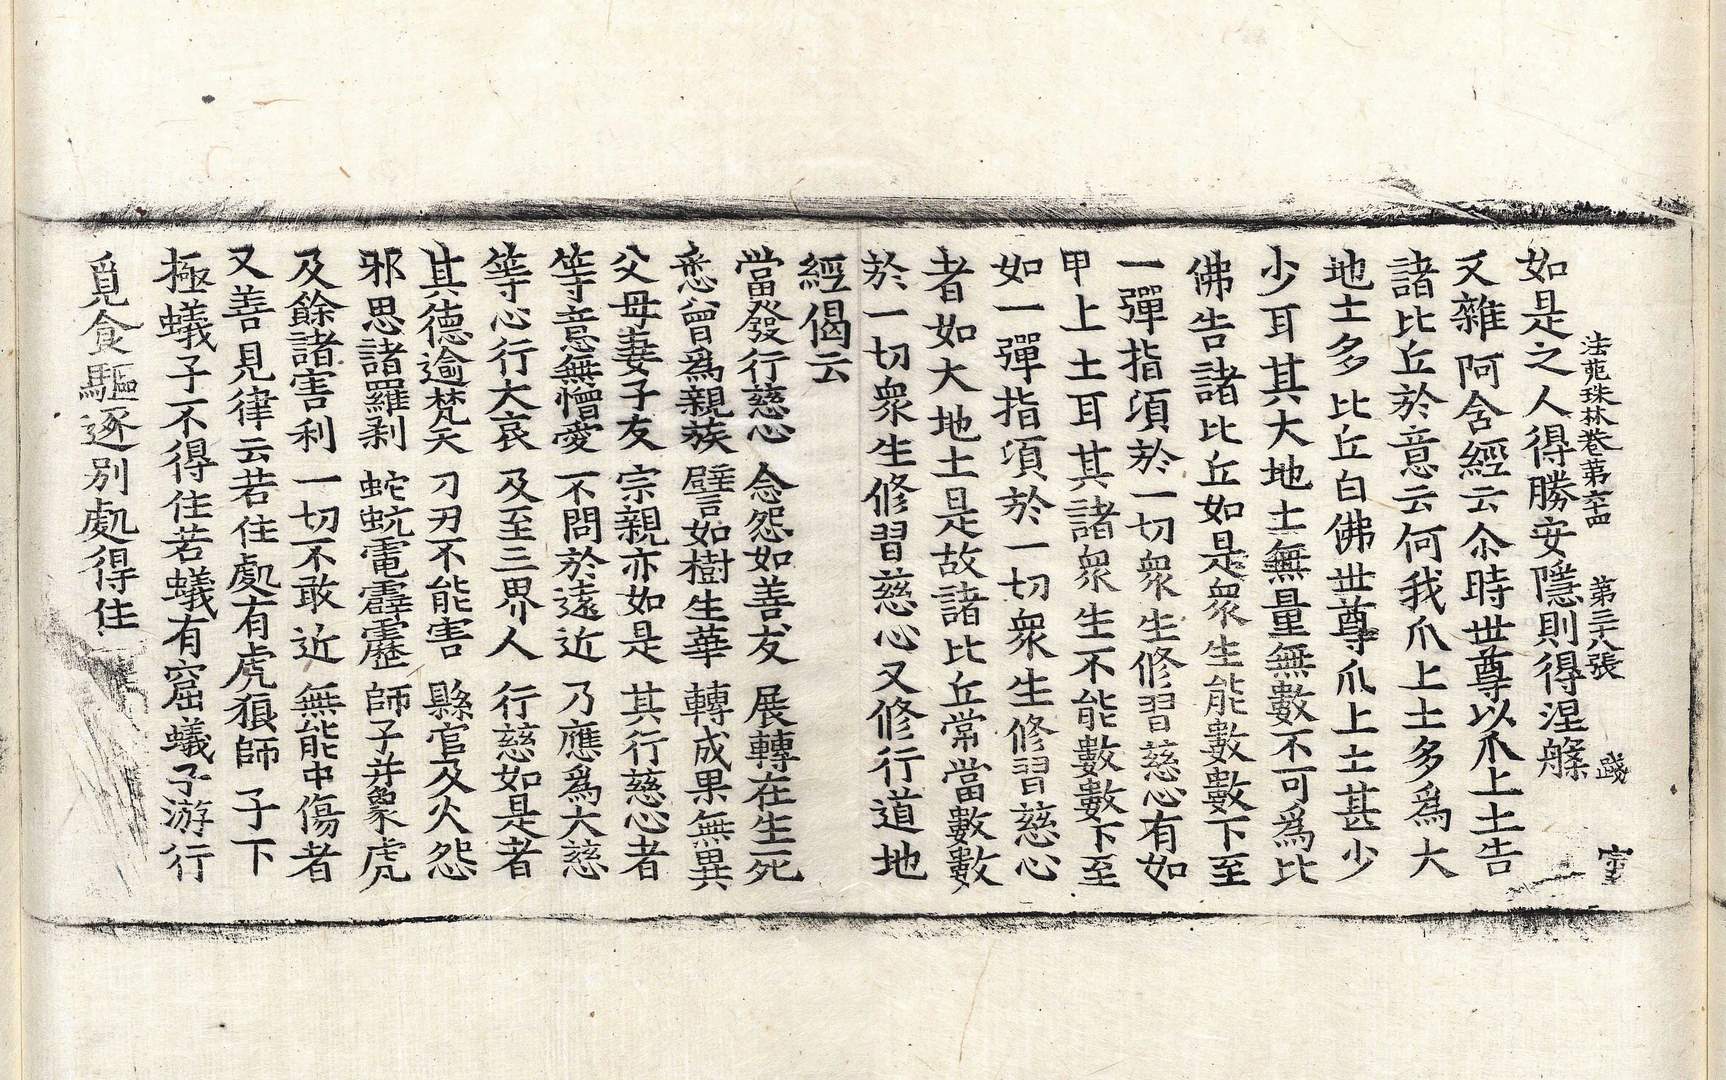 法苑珠林卷第六十四 第三十八張 㦮 宝
如是之人得勝安隱則得涅槃
又雜阿含經云尒時世尊以爪上土告
諸比丘於意云何我爪上土多爲大
地土多比丘白佛世尊爪上土甚少
少耳其大地土無量無數不可爲比
佛告諸比丘如是衆生能數數下至
一彈指頃於一切衆生修習慈心有如
甲上土耳其諸衆生不能數數下至
如一彈指頃於一切衆生修習慈心
者如大地土是故諸比丘常當數數
於一切衆生修習慈心又修行道地
經偈云
當發行慈心 念怨如善友 展轉在生死
悉曾爲親族 譬如樹生華 轉成果無異
父母妻子友 宗親亦如是 其行慈心者
等意無憎愛 不問於遠近 乃應爲大慈
等心行大哀 及至三界人 行慈如是者
其德逾梵天 刀刃不能害 縣官及火怨
邪思諸羅剎 蛇蚖雷霹靂 師子并象虎
及餘諸害利 一切不敢近 無能中傷者
又善見律云若住處有虎狼師子下
極蟻子不得住若蟻有窟蟻子游行
覓食驅逐別處得住